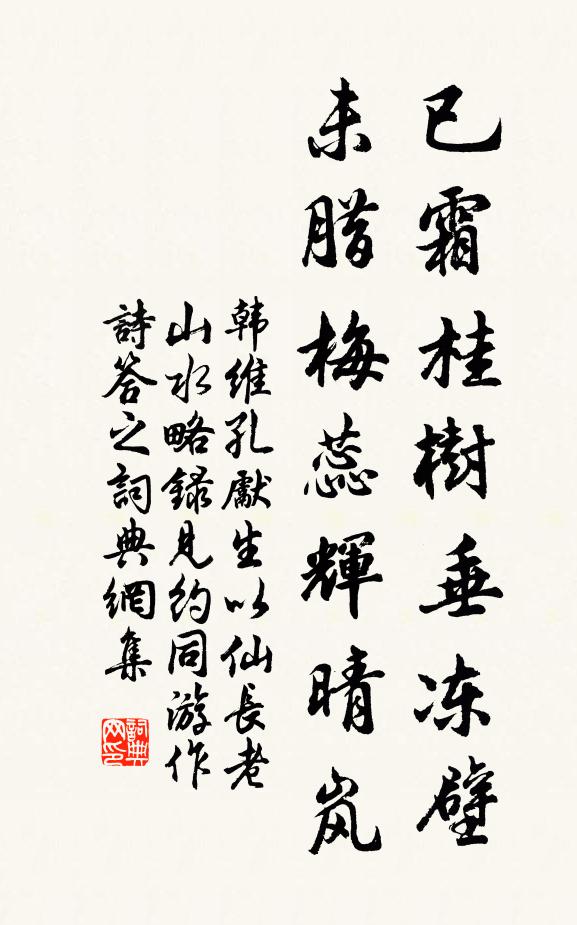 已霜桂樹垂冻壁
未腊梅蕊輝晴岚
韩維孔獻生以仙長老
山水略録見約同游作
詩答之詞典網集
詞典网印